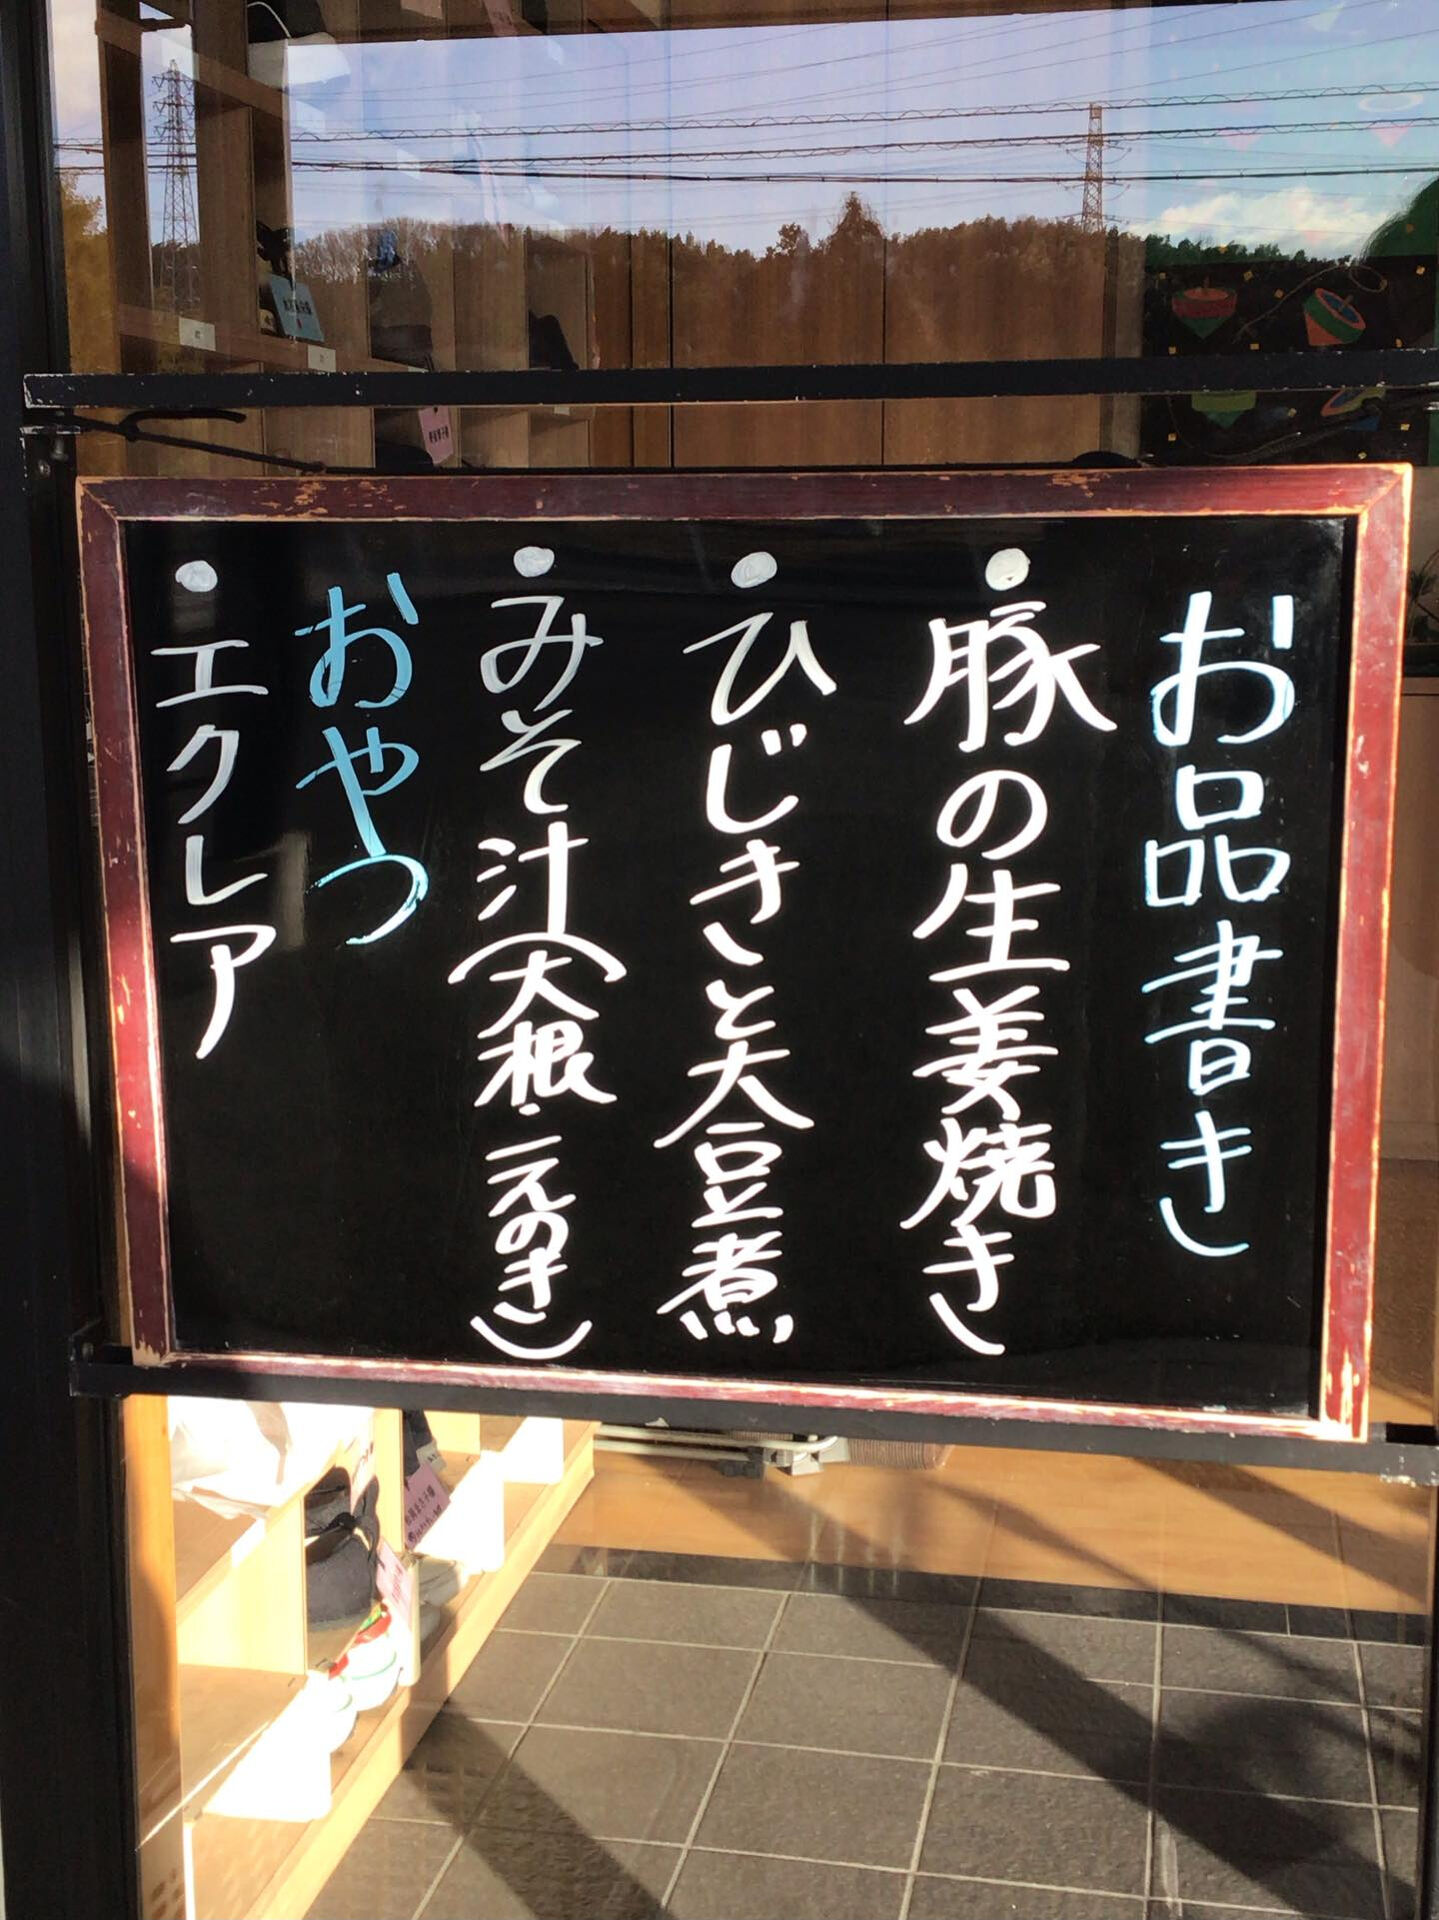 お品書き
●豚の生姜焼き
●ひじきと大豆煮
●みそ汁(大根・えのき)
おやつ
●エクレア